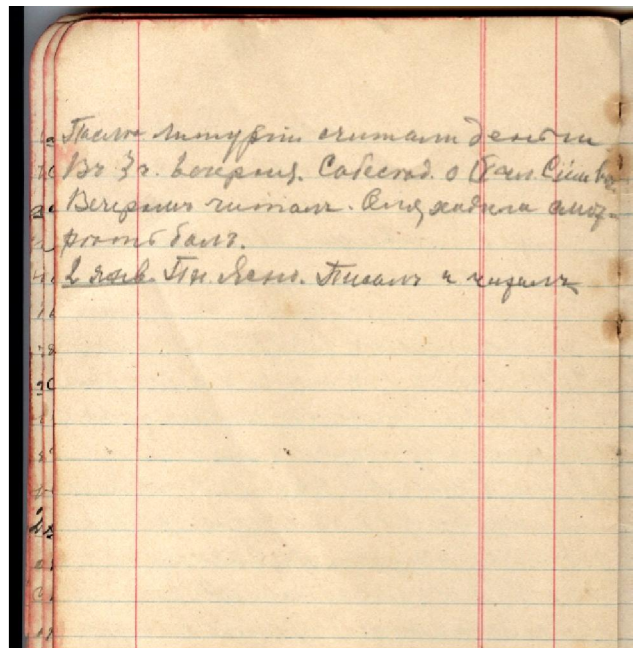 После Литургіи считали деньги
Въ 3 ч. вечерня. Собесѣд. о
Вечеромъ читалъ. Оля ходила смот-
рѣть балъ.
2 янв. Пн. Ясно. Писалъ и читалъ